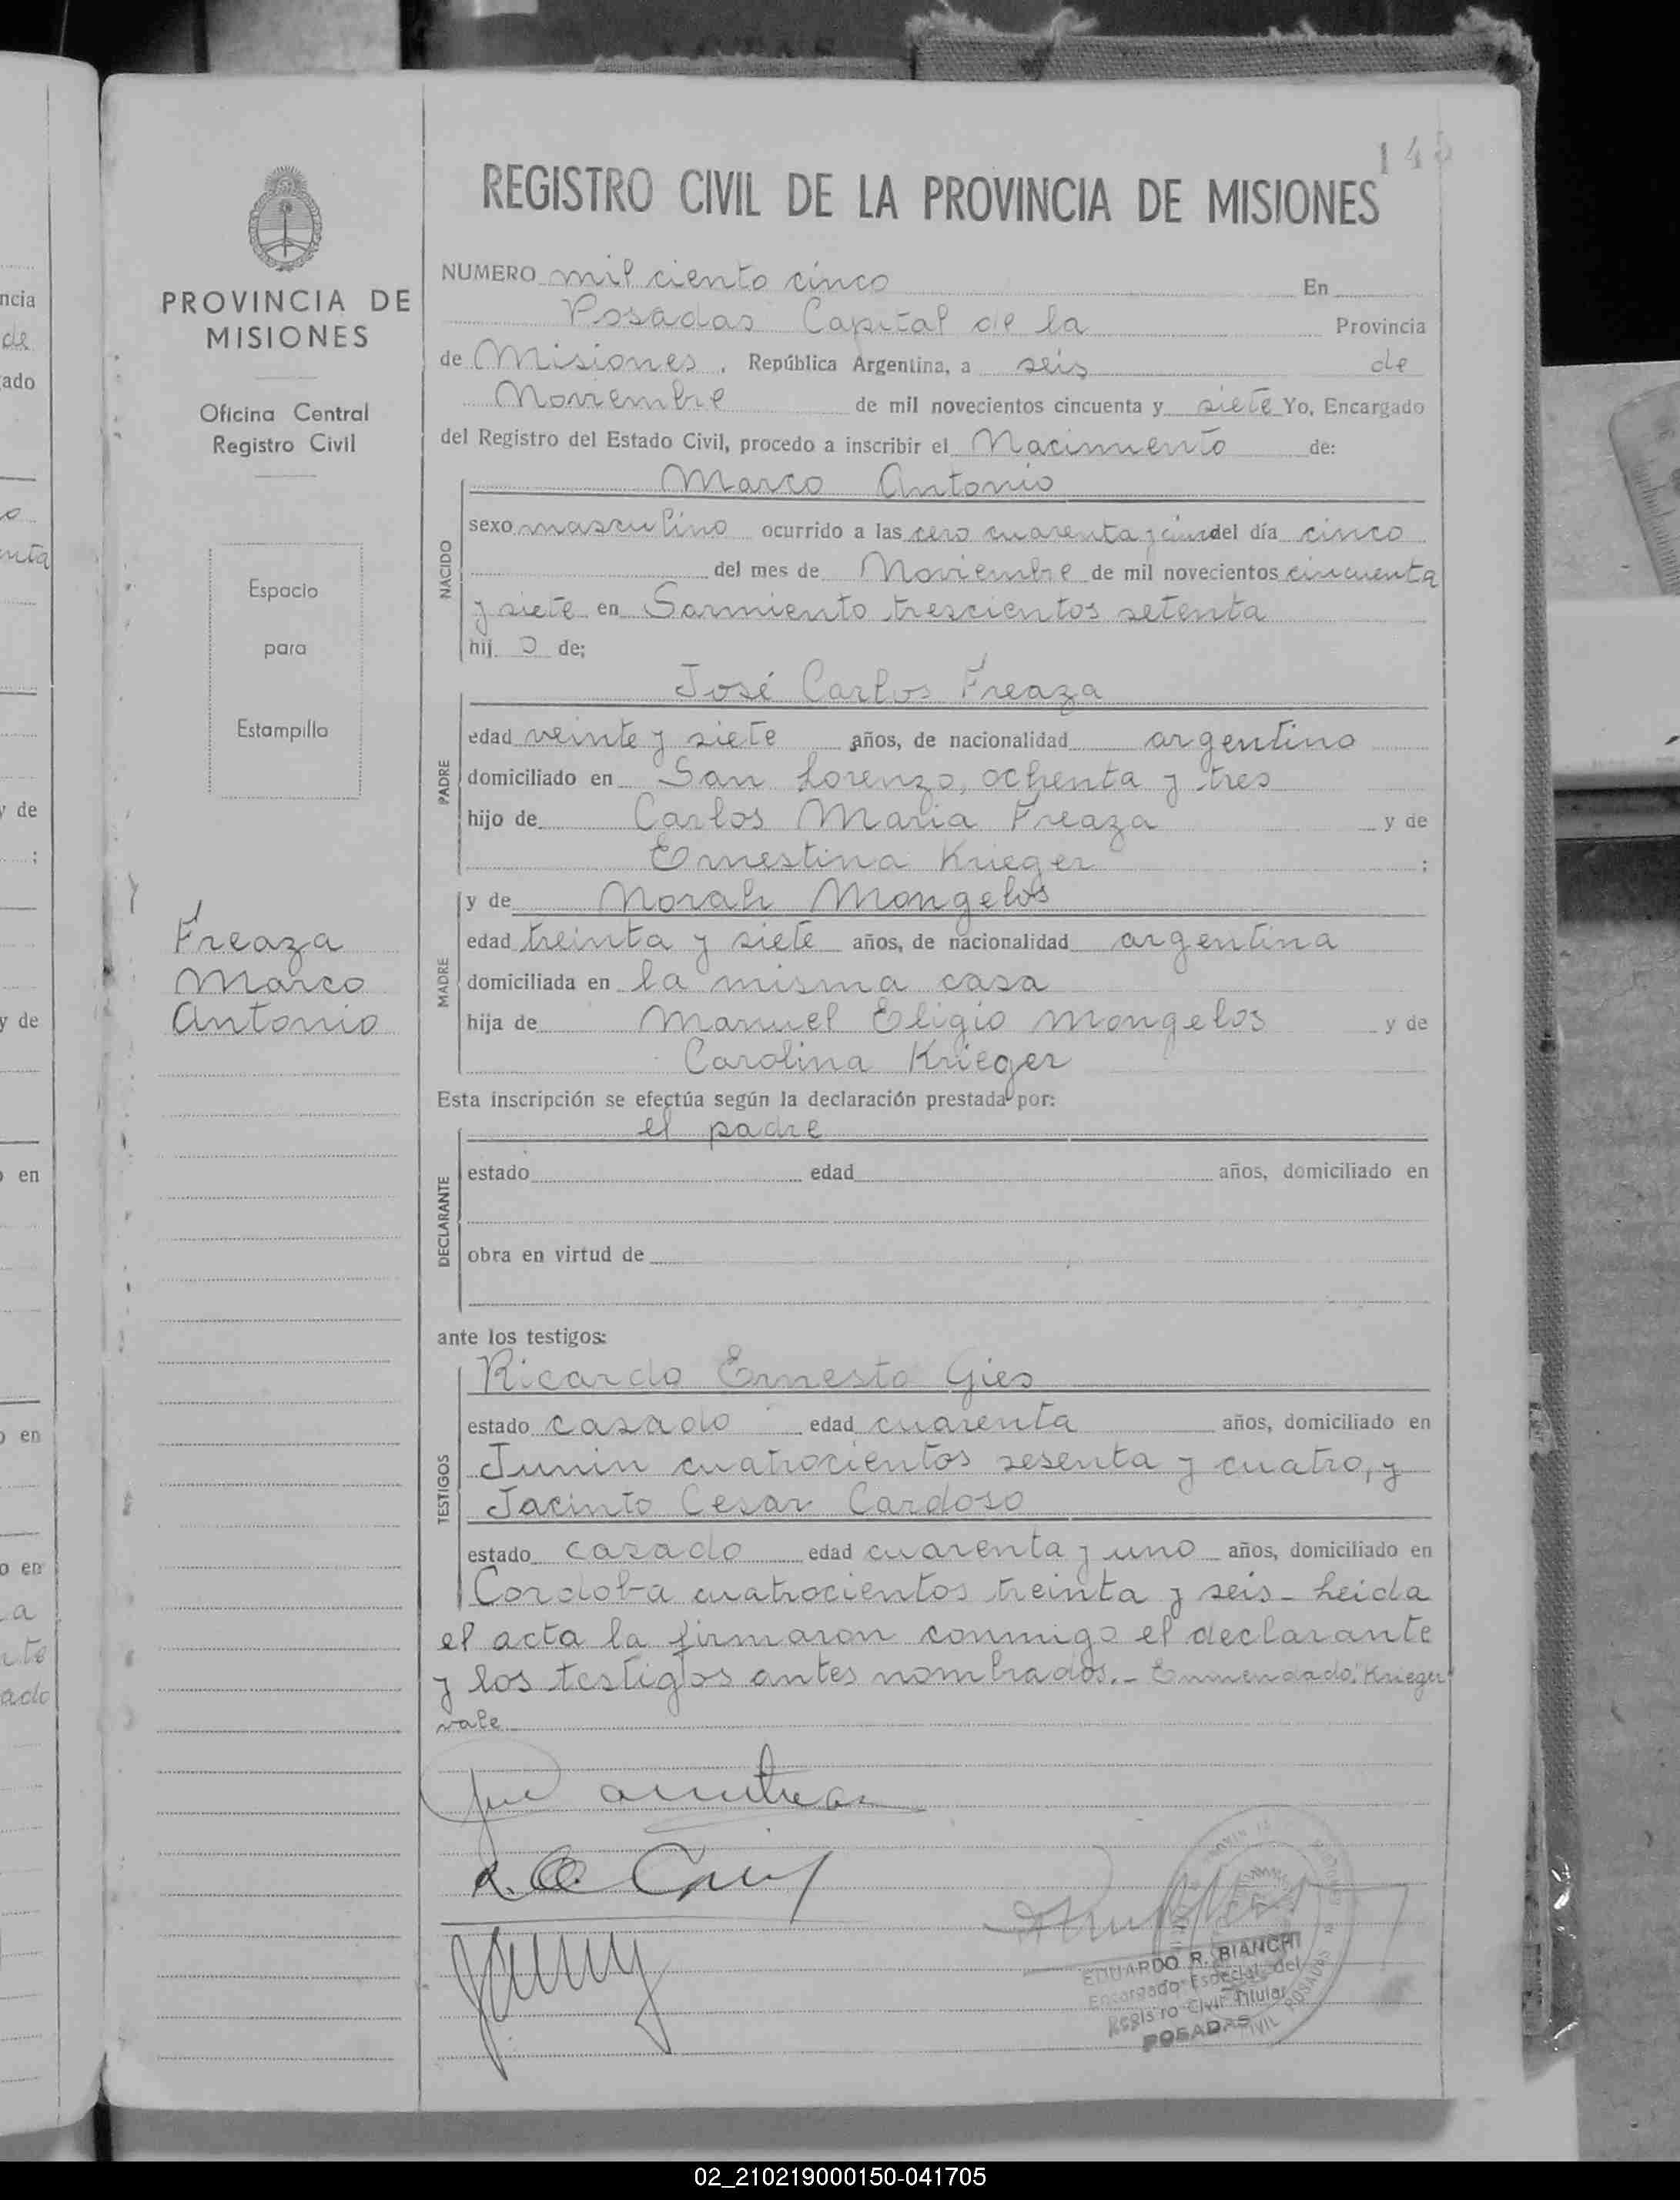 REGISTRO CIVIL DE LA PROVINCIA DE MISIONES
PROVINCIA DE
MISIONES
Oficina Central
Registro Civil
Espacio
para
Estampilla
Freaza
Marco
Antonio
NUMERO mil ciento cinco En
Posadas Capital de la Provincia
de Misiones, República Argentina, a seis de
Noviembre de mil novecientos cincuenta y siete Yo, Encargado
del Registro del Estado Civil, procedo a inscribir el Nacimiento de:
Marco Antonio
NACIDO
sexo masculino ocurrido a las cero cuarenta y cinco del día cinco
del mes de Noviembre de mil novecientos cincuenta
y siete en Sarmiento trescientos setenta
hij o de:
José Carlos Freaza
PADRE
edad veinte y siete años, de nacionalidad argentino
domiciliado en San Lorenzo, ochenta y tres
hijo de Carlos Maria Freaza y de
Ernestina Krieger ;
y de Norah Mongelos
MADRE
edad treinta y siete años, de nacionalidad argentina
domiciliada en la misma casa
hija de Manuel Eligio Mongelos y de
Carolina Krieger
Esta inscripción se efectúa según la declaración prestada por:
el padre
DECLARANTE
estado edad años, domiciliado en
obra en virtud de
ante los testigos:
Ricardo Ernesto Gies
TESTIGOS
estado casado edad cuarenta años, domiciliado en
Junin cuatrocientos sesenta y cuatro, y
Jacinto Cesar Cardoso
estado casado edad cuarenta y uno años, domiciliado en
Cordoba cuatrocientos treinta y seis - Leida
el acta la firmaron conmigo el declarante
y los testigos antes nombrados.- Enmendado: "Krieger"
vale
EDUARDO R. BIANCHI
Encargado Especial del
Registro Civil Titular
POSADAS
02_210219000150-041705